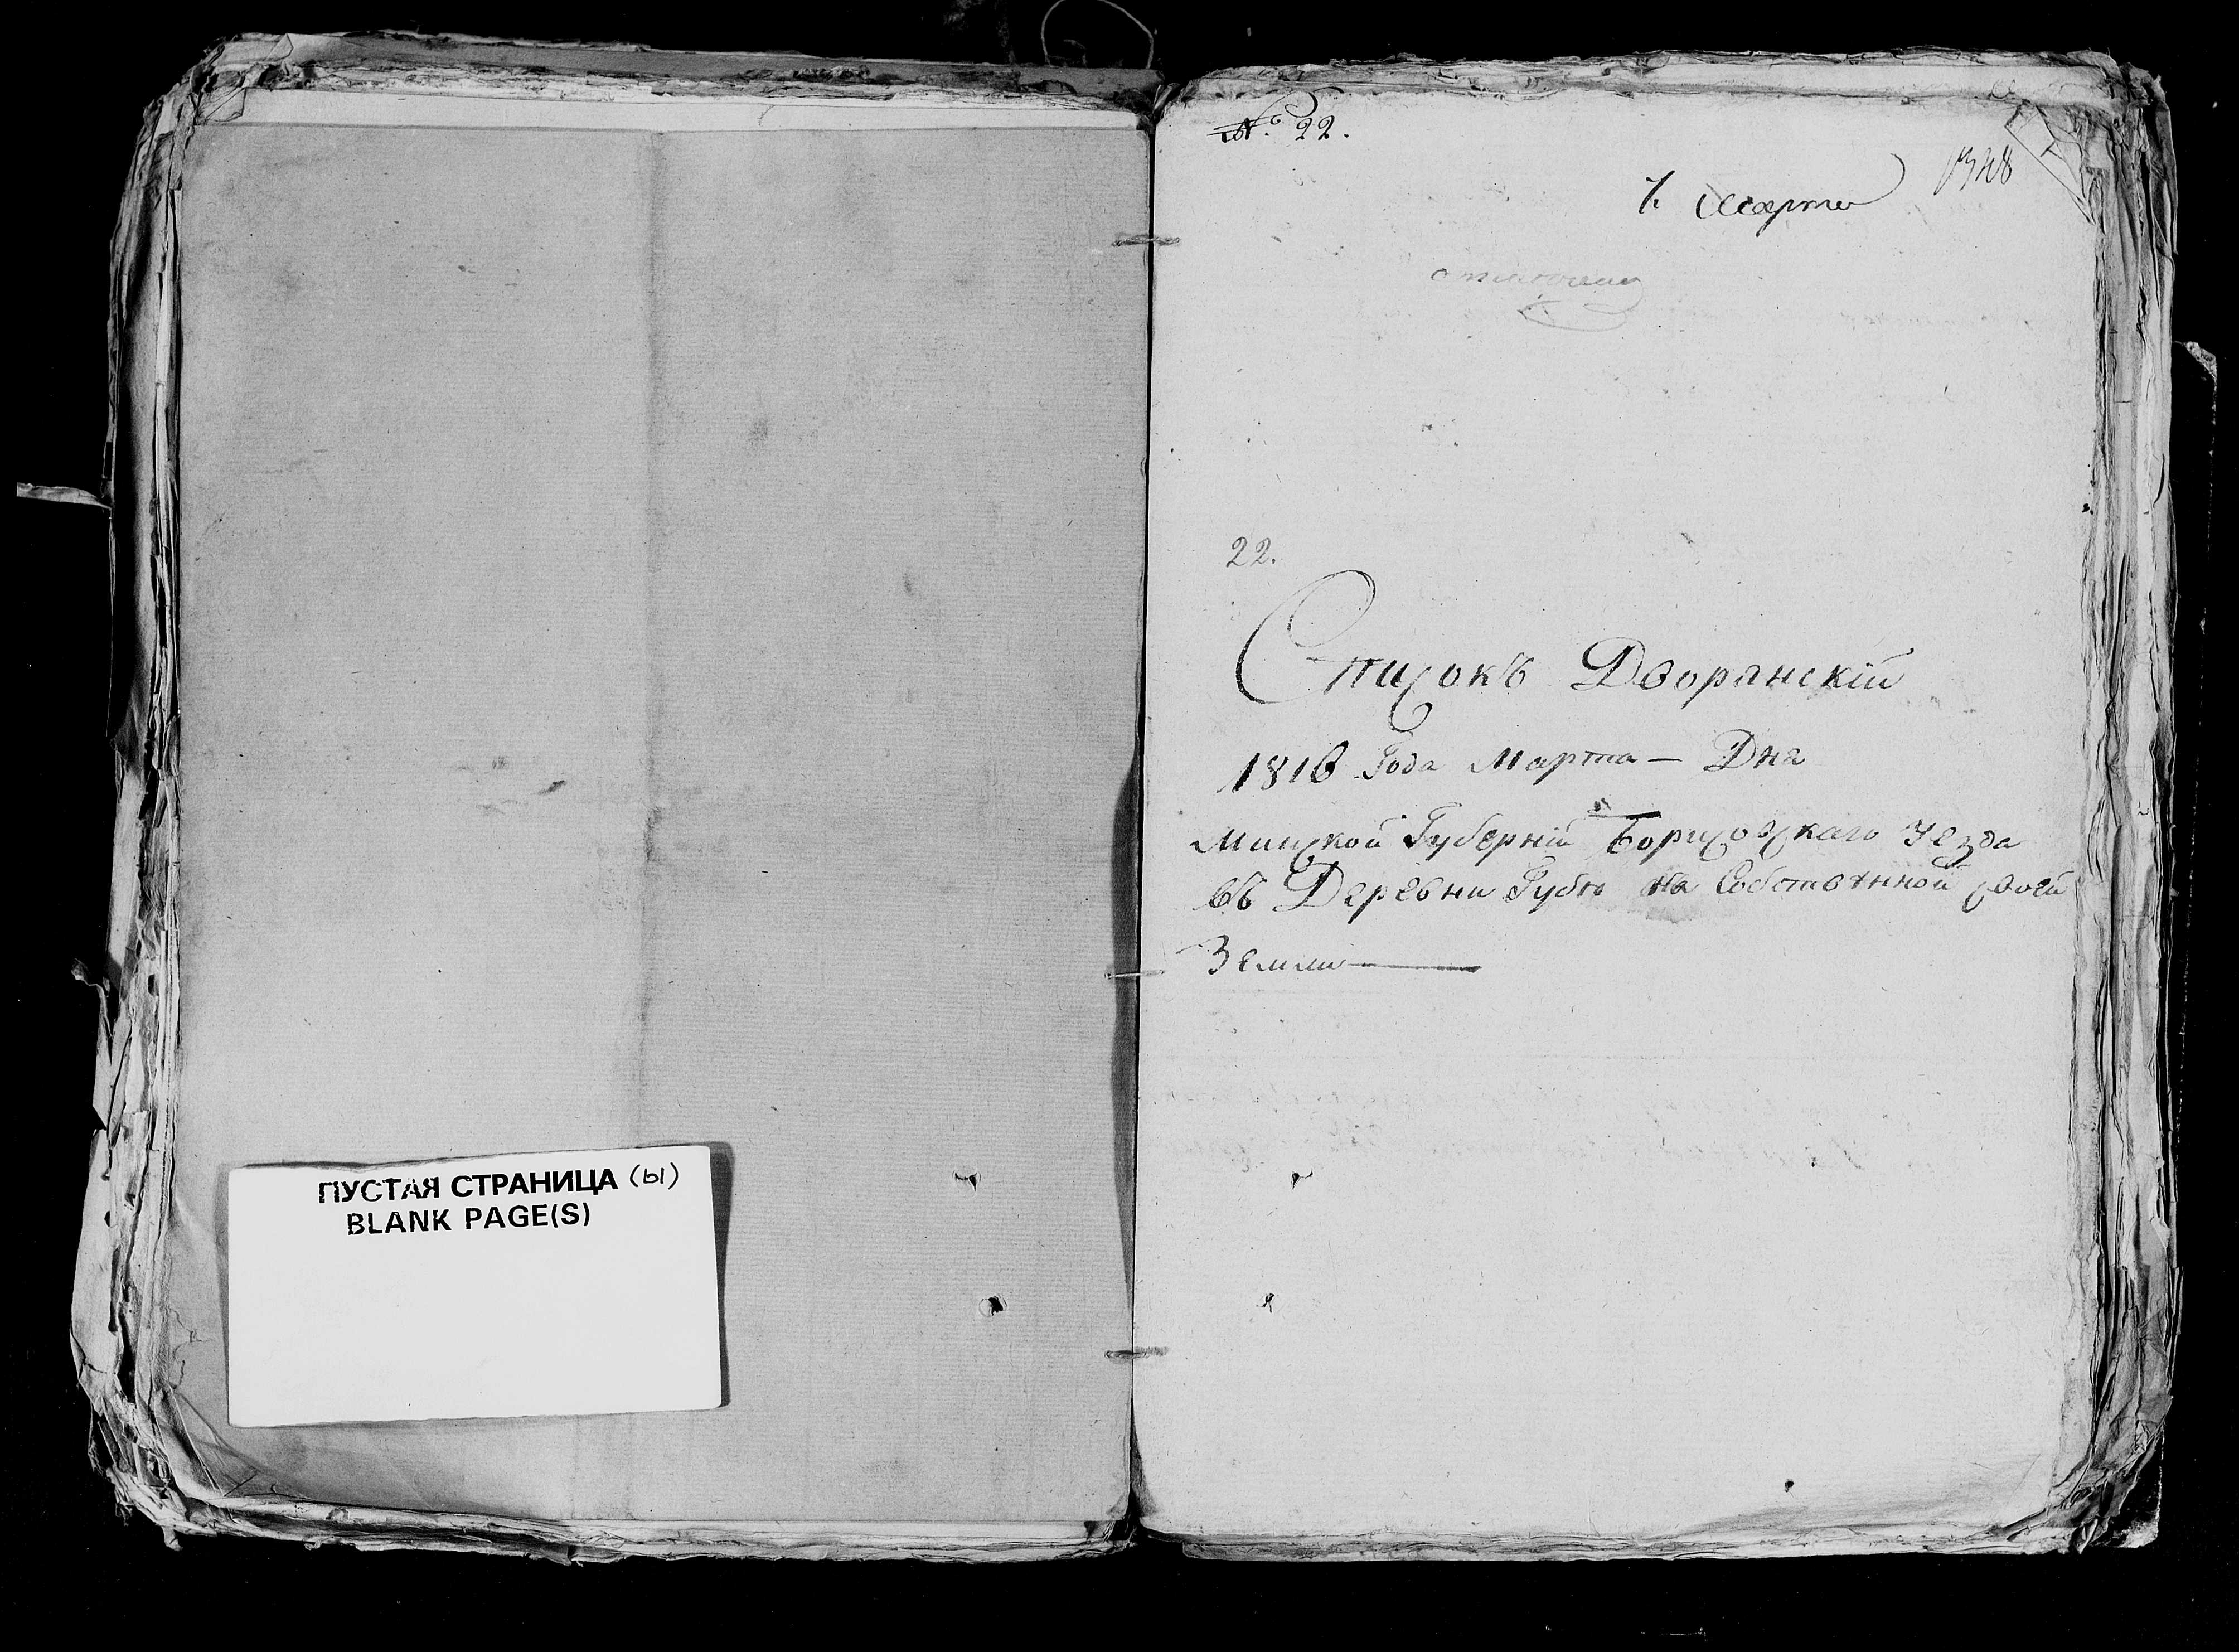 ПУСТАЯ СТРАНИЦА (ы)
BLANK PAGE(S)
№ 22.
1. Марта
22.
Списокъ Дворянскій
1816 Года Марта — Дня
Минской Губерніи Борисовскаго Уезда
въ Деревни Губю на Собственной своей
Земли